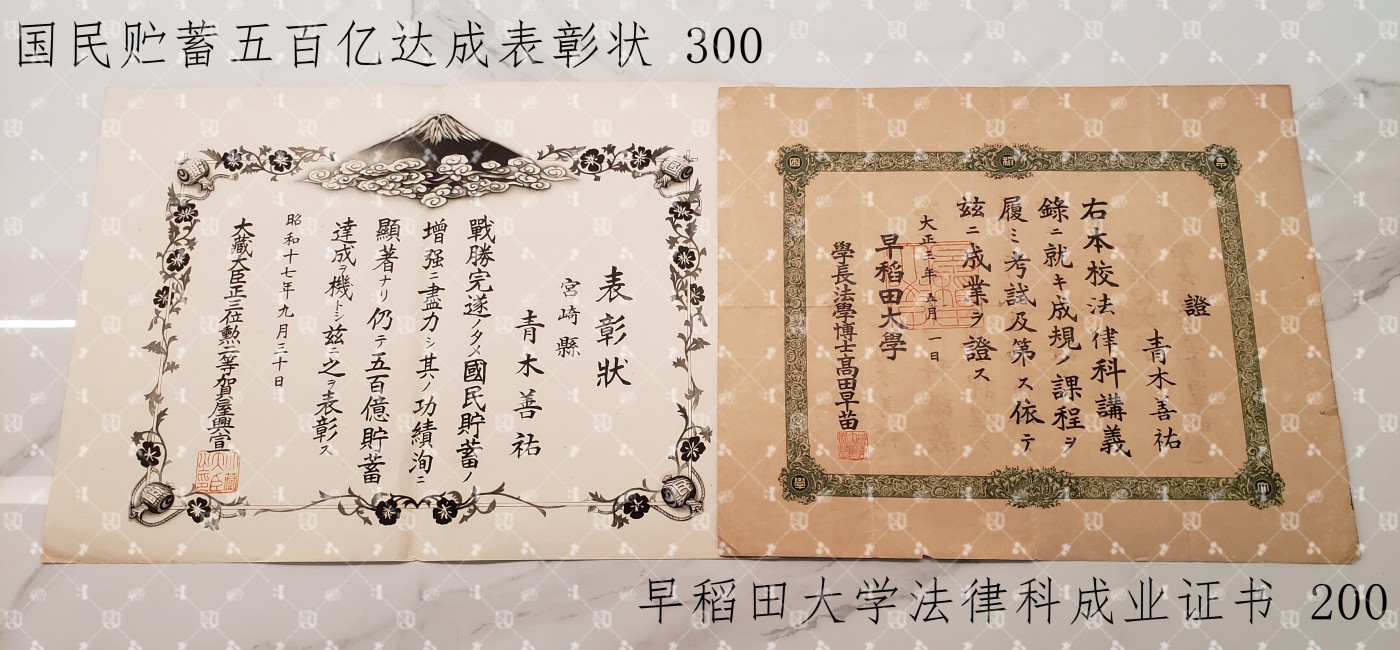 国民贮蓄五百亿达成表彰状 300
表彰状
宮崎縣
青木善祐
戰勝完遂ノタメ國民貯蓄ノ
增强ニ盡力シ其ノ功績洵ニ
顯著ナリ仍テ五百億貯蓄
達成ヲ機トシ茲ニ之ヲ表彰ス
昭和十七年九月三十日
大藏大臣正三位勲二等賀屋興宣
證
青木善祐
右本校法律科講義
錄ニ就キ成規ノ課程ヲ
履ミ考試及第ス依テ
茲ニ成業ヲ證ス
大正三年五月一日
早稻田大學
學長法學博士髙田早苗
早稻田大学法律科成业证书 200